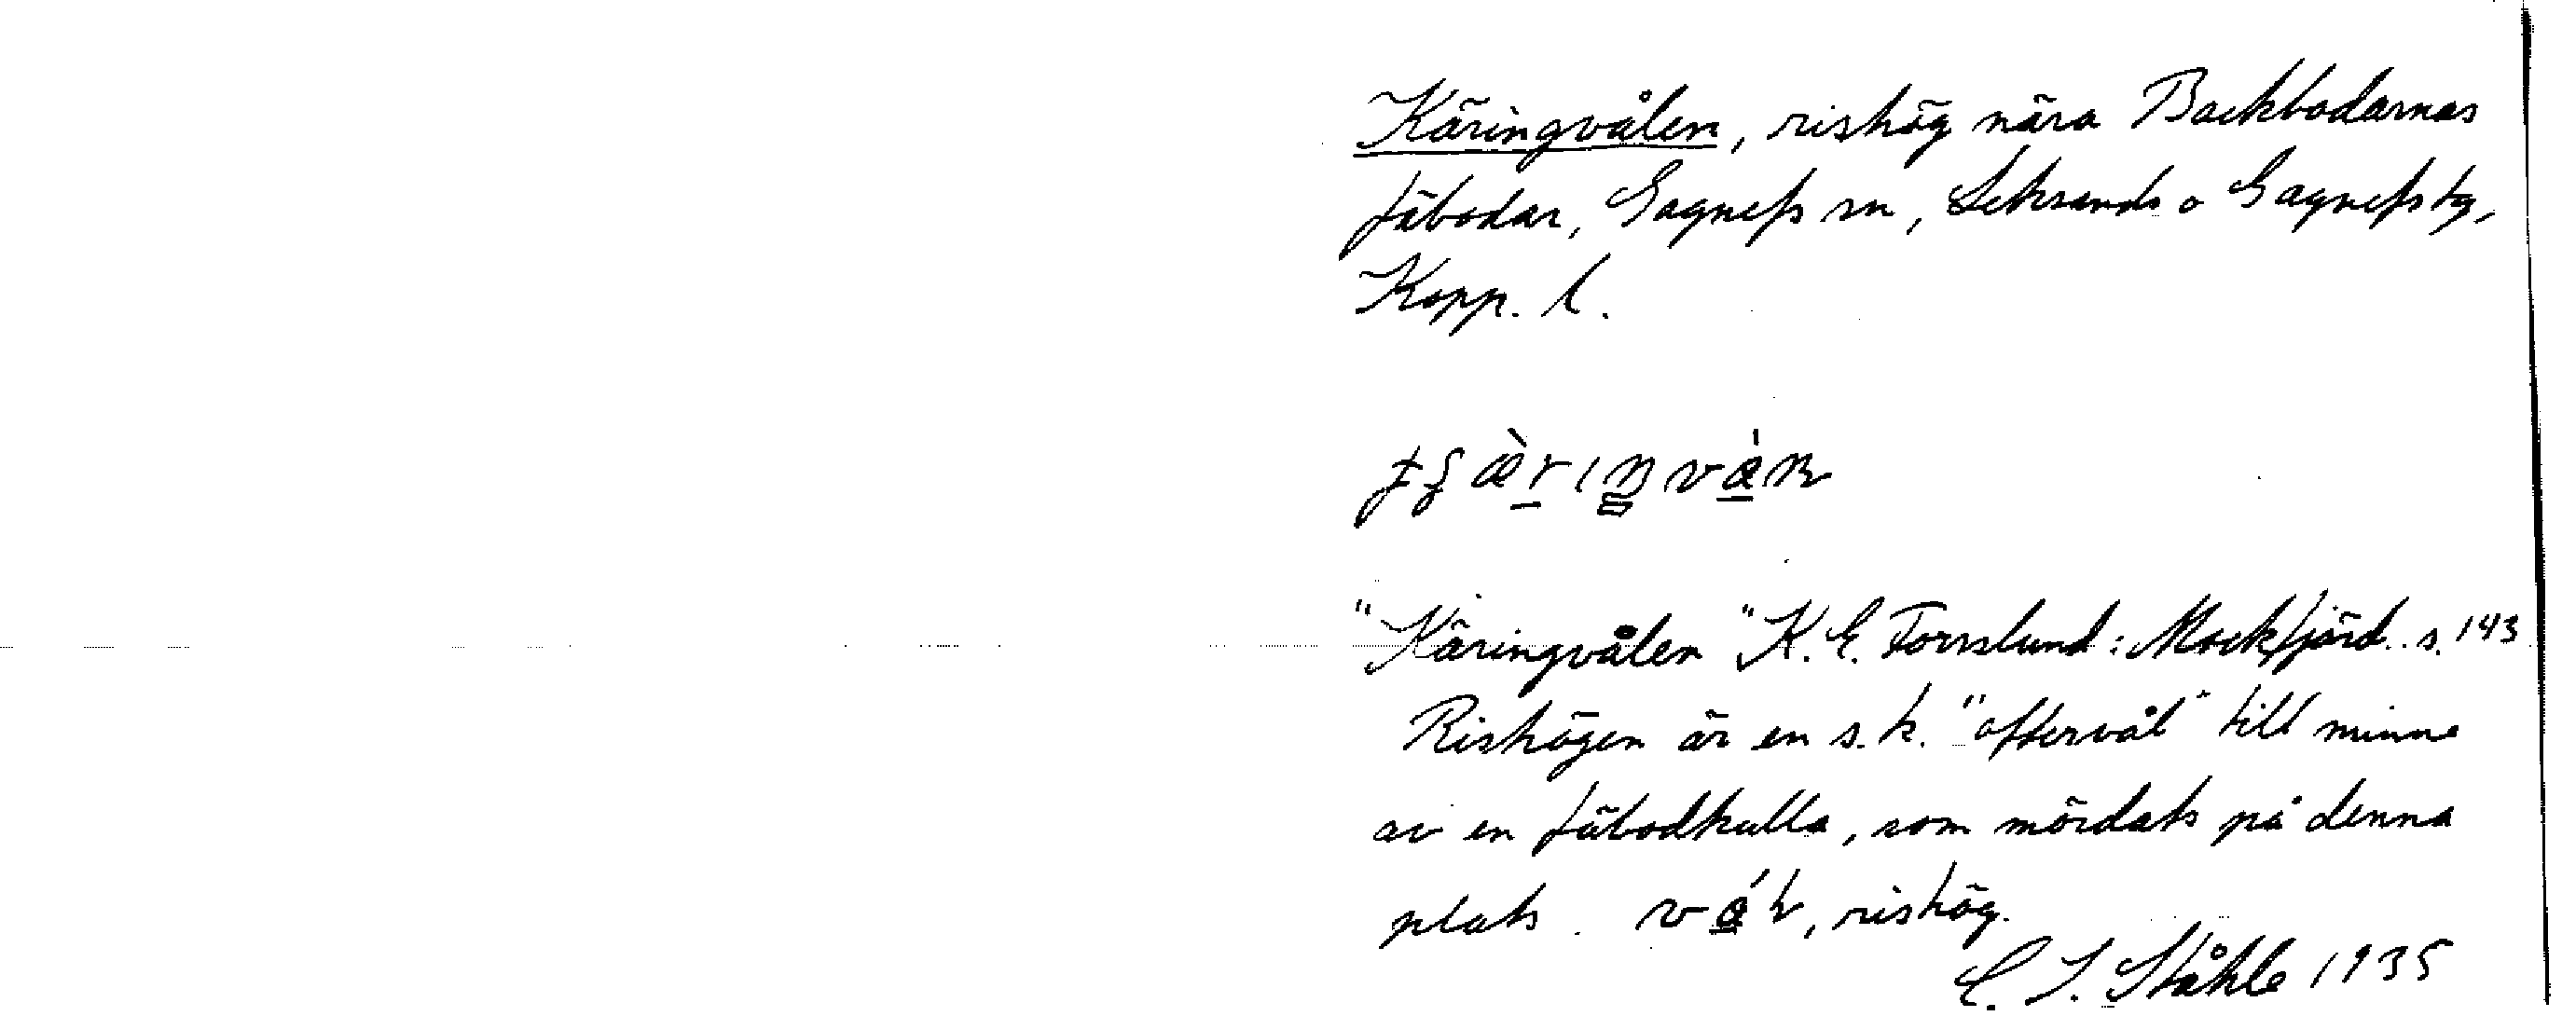 Käringvålen, rishög nära Backbodarnas
fäbodar, Gagnefs sn, Leksands o Gagnefs tg,
Kopp. l.
"Käringvålen" K. E. Forsslund: Mockfjärd.. s. 143
Rishögen är en s.k. "offervål" till minne
av en fäbodkulla, som mördats på denna
plats. rishög.
C. I. Ståhle 1935